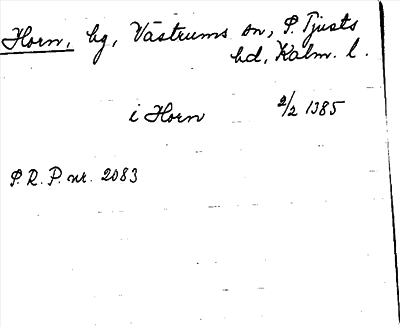 Horn, hg, Västrums sn, S. Tjusts
hd, Kalm. l.
i Horn 2/2 1385
S. R. P. nr. 2083